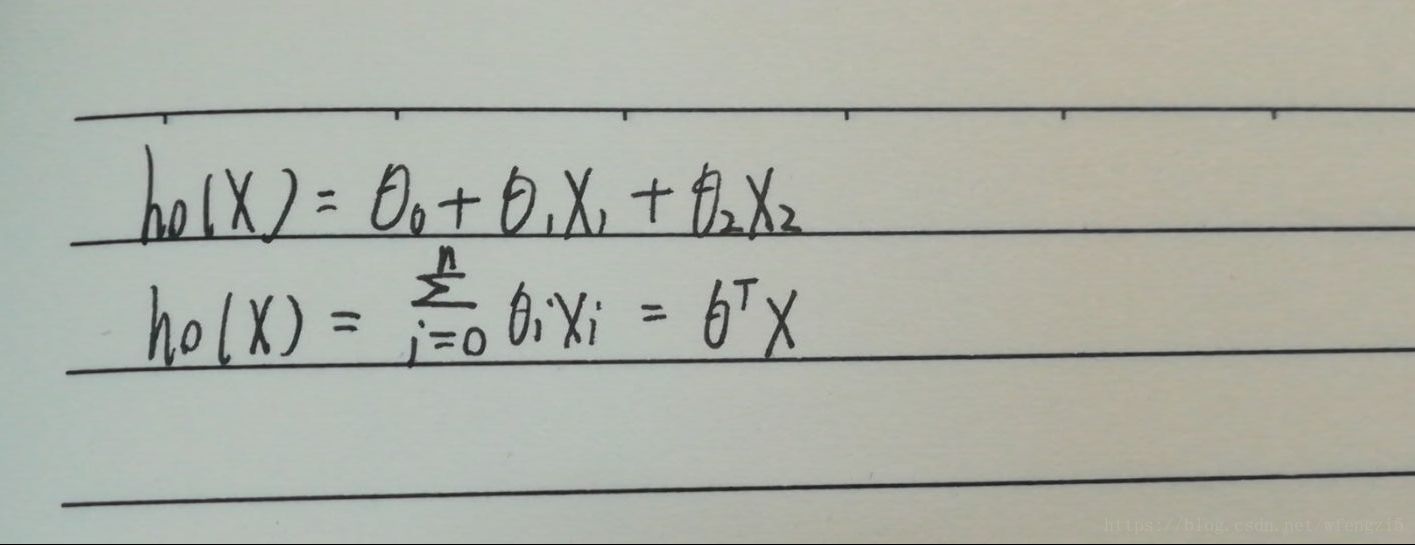 h₀(X) = θ₀ + θ₁X₁ + θ₂X₂
h₀(X) = ∑ⁿᵢ₌₀ θᵢXᵢ = θᵀX
https://blog.csdn.net/wfengzi5